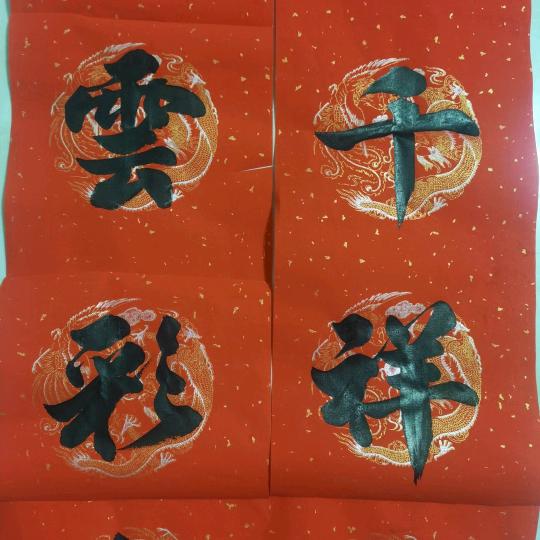 千祥
雲彩